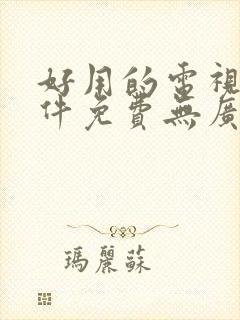 好用的電視
件免費無廣
瑪麗蘇